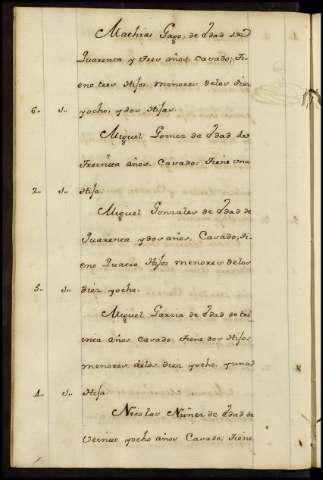 Mathias Gago, de Edad de
Quarenta y tres años, Casado; tie
ne tres Hijos, menores de los diez
6. s. yocho; y dos Hijas.
Miguel Gomez de Edad de
treinta años, Casado; tiene una
2. s. Hija.
Miguel Gonzales de Edad de
Quarenta ydos años, Casado; tie
ne Quatro Hijos menores delos
5. s. diez yocho.
Miguel Garzia de Edad de tre
inta años Casado, tiene dos Hijos
menores delos diez yocho, yuna
4. s. Hija
Nicolas Nuñez de Edad de
Veinte yocho años Casado; tiene